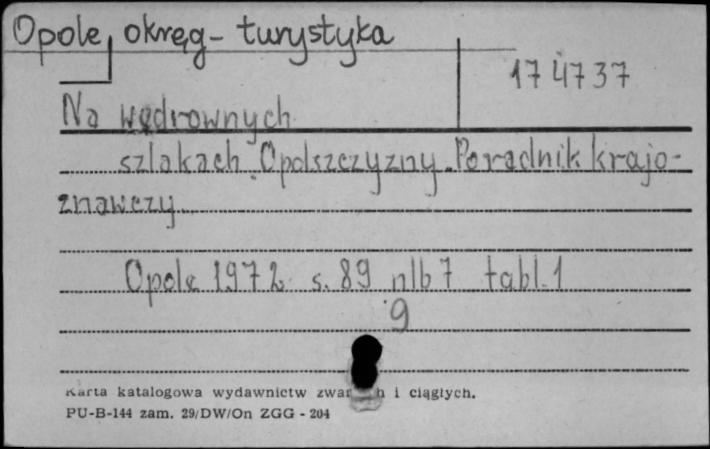 Opole, okręg - turystyka
174737
Na wędrownych
szlakach Opolszczyzny. Poradnik krajo-
znawczy.
Opole 1972 s. 89 nlb 7 tabl. 1
9
Karta katalogowa wydawnictw i ciągłych.
PU-B-144 zam. 29/DW/On ZGG - 204